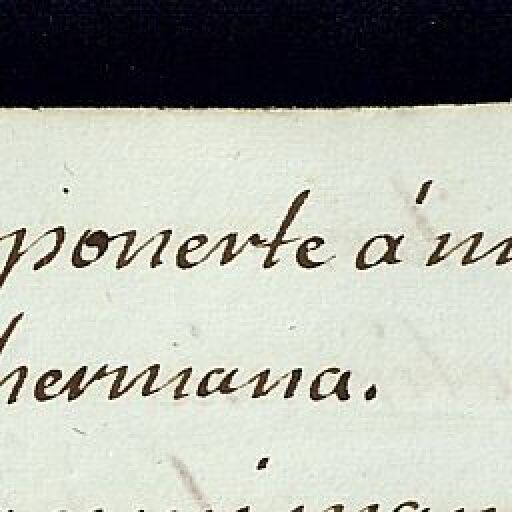 ponerte á m
hermana.